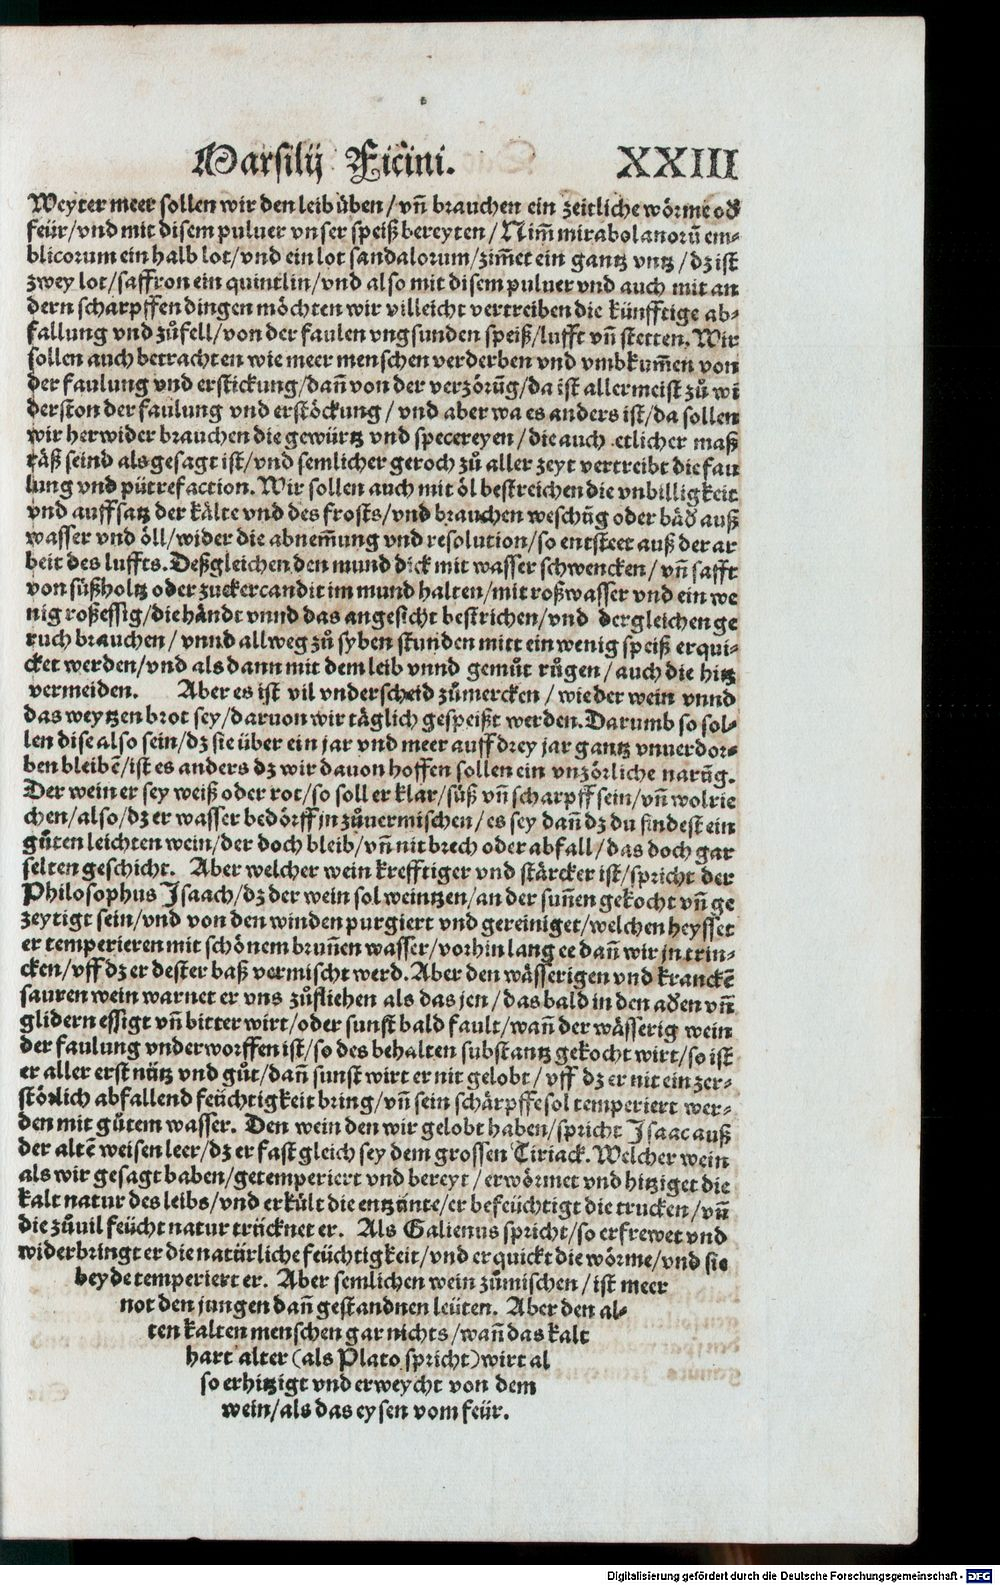 Marsilij Ficini. XXIII
Weyter meer sollen wir den leib üben / vñ brauchen ein zeitliche wörme od̕
feür / vnd mit disem puluer vnser speiß bereyten / Nim̃ mirabolanorũ em-
blicorum ein halb lot / vnd ein lot sandalorum / zim̃et ein gantz vntz / dz ist
zwey lot / saffron ein quintlin / vnd also mit disem puluer vnd auch mit an
dern scharpffen dingen möchten wir villeicht vertreiben die künfftige ab-
fallung vnd zůfell / von der faulen vngsunden speiß / lufft vñ stetten. Wir
sollen auch betrachten wie meer menschen verderben vnd vmbkum̃en von
der faulung vnd erstickung / dañ von der verzörũg / da ist aller meist zů wi
derston der faulung vnd erstöckung / vnd aber wa es anders ist / da sollen
wir herwider brauchen die gewürtz vnd specereyen / die auch etlicher maß
räß seind als gesagt ist / vnd semlicher geroch zů aller zeyt vertreibt die fau
lung vnd pütrefaction. Wir sollen auch mit öl bestreichen die vnbilligkeit
vnd auffsatz der kälte vnd des frosts / vnd brauchen weschũg oder bäd auß
wasser vnd öll / wider die abnem̃ung vnd resolution / so entsteet auß der ar
beit des luffts. Deßgleichen den mund dick mit wasser schwencken / vñ safft
von süßholtz oder zuckercandit im mund halten / mit roßwasser vnd ein we
nig roßessig / die händt vnnd das angesicht bestrichen / vnd dergleichen ge
ruch brauchen / vnnd allweg zů syben stunden mitt ein wenig speiß erqui-
cket werden / vnd als dann mit dem leib vnnd gemůt růgen / auch die hitz
vermeiden. Aber es ist vil vnderscheid zůmercken / wie der wein vnnd
das weytzen brot sey / daruon wir täglich gespeißt werden. Darumb so sol-
len dise also sein / dz sie über ein jar vnd meer auff drey jar gantz vnuerdor-
ben bleibẽ / ist es anders dz wir dauon hoffen sollen ein vnzörliche narũg.
Der wein er sey weiß oder rot / so soll er klar / süß vñ scharpff sein / vñ wolrie
chen / also / dz er wasser bedörff jn zůuermischen / es sey dañ dz du findest ein
gůten leichten wein / der doch bleib / vñ nit brech oder abfall / das doch gar
selten geschicht. Aber welcher wein krefftiger vnd stärcker ist / spricht der
Philosophus Jsaach / dz der wein sol weintzen / an der suñen gekocht vñ ge
zeytigt sein / vnd von den winden purgiert vnd gereiniget / welchen heysset
er temperieren mit schönem bruñen wasser / vorhin lang ee dañ wir jn trin-
cken / vff dz er dester baß vermischt werd. Aber den wässerigen vnd kranckẽ
sauren wein warnet er vns zůfliehen als das jen / das bald in den ad̕en vñ
glidern essigt vñ bitter wirt / oder sunst bald fault / wañ der wässerig wein
der faulung vnderworffen ist / so des behalten substantz gekocht wirt / so ist
er aller erst nütz vnd gůt / dañ sunst wirt er nit gelobt / vff dz er nit ein zer-
störlich abfallend feüchtigkeit bring / vñ sein schärpffe sol temperiert wer-
den mit gůtem wasser. Den wein den wir gelobt haben / spricht Jsaac auß
der altẽ weisen leer / dz er fast gleich sey dem grossen Tiriack. Welcher wein
als wir gesagt haben / getemperiert vnd bereyt / erwörmet vnd hitziget die
kalt natur des leibs / vnd erkült die entzünte / er befeüchtigt die trucken / vñ
die zůuil feücht natur trücknet er. Als Galienus spricht / so erfrewet vnd
widerbringt er die natürliche feüchtigkeit / vnd erquickt die wörme / vnd sie
beyde temperiert er. Aber semlichen wein zůmischen / ist meer
not den jungen dañ gestandnen leüten. Aber den al-
ten kalten menschen gar nichts / wañ das kalt
hart alter (als Plato spricht) wirt al
so erhitzigt vnd erweycht von dem
wein / als das eysen vom feür.
Digitalisierung gefördert durch die Deutsche Forschungsgemeinschaft - DFG